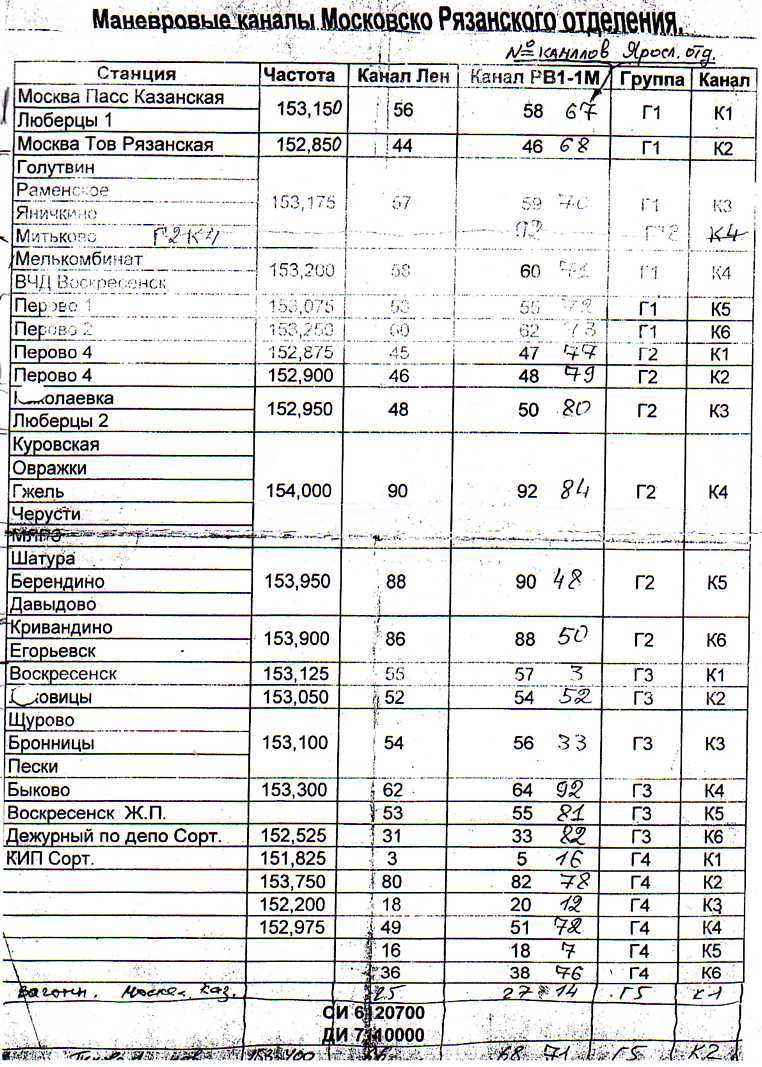 Маневровые каналы Московско Рязанского отделения.
№ каналов Яросл. отд.
Станция Частота Канал Лен Канал РВ1-1М Группа Канал
Москва Пасс Казанская 153,150 56 58 67 Г1 К1
Люберцы 1
Москва Тов Рязанская 152,850 44 46 68 Г1 К2
Голутвин
Раменское 153,175 57 59 70 Г1 К3
Яничкино
Митьково Г2К4 92 К4
Мелькомбинат 153,200 58 60 71 Г1 К4
ВЧД Воскресенск
Перово 1 153,075 53 55 72 Г1 К5
Перово 2 153,250 60 62 73 Г1 К6
Перово 4 152,875 45 47 77 Г2 К1
Перово 4 152,900 46 48 79 Г2 К2
Николаевка 152,950 48 50 80 Г2 К3
Люберцы 2
Куровская
Овражки
Гжель 154,000 90 92 84 Г2 К4
Черусти
Шатура
Берендино 153,950 88 90 48 Г2 К5
Давыдово
Кривандино 153,900 86 88 50 Г2 К6
Егорьевск
Воскресенск 153,125 55 57 3 Г3 К1
овицы 153,050 52 54 52 Г3 К2
Щурово
Бронницы 153,100 54 56 33 Г3 К3
Пески
Быково 153,300 62 64 92 Г3 К4
Воскресенск Ж.П. 53 55 81 Г3 К5
Дежурный по депо Сорт. 152,525 31 33 82 Г3 К6
КИП Сорт. 151,825 3 5 16 Г4 К1
153,750 80 82 78 Г4 К2
152,200 18 20 12 Г4 К3
152,975 49 51 72 Г4 К4
16 18 7 Г4 К5
36 38 76 Г4 К6
Вагонн. Москва Каз. 25 27 14 Г5 К1
СИ 6120700
ДИ 7110000
68 71 Г5 К2